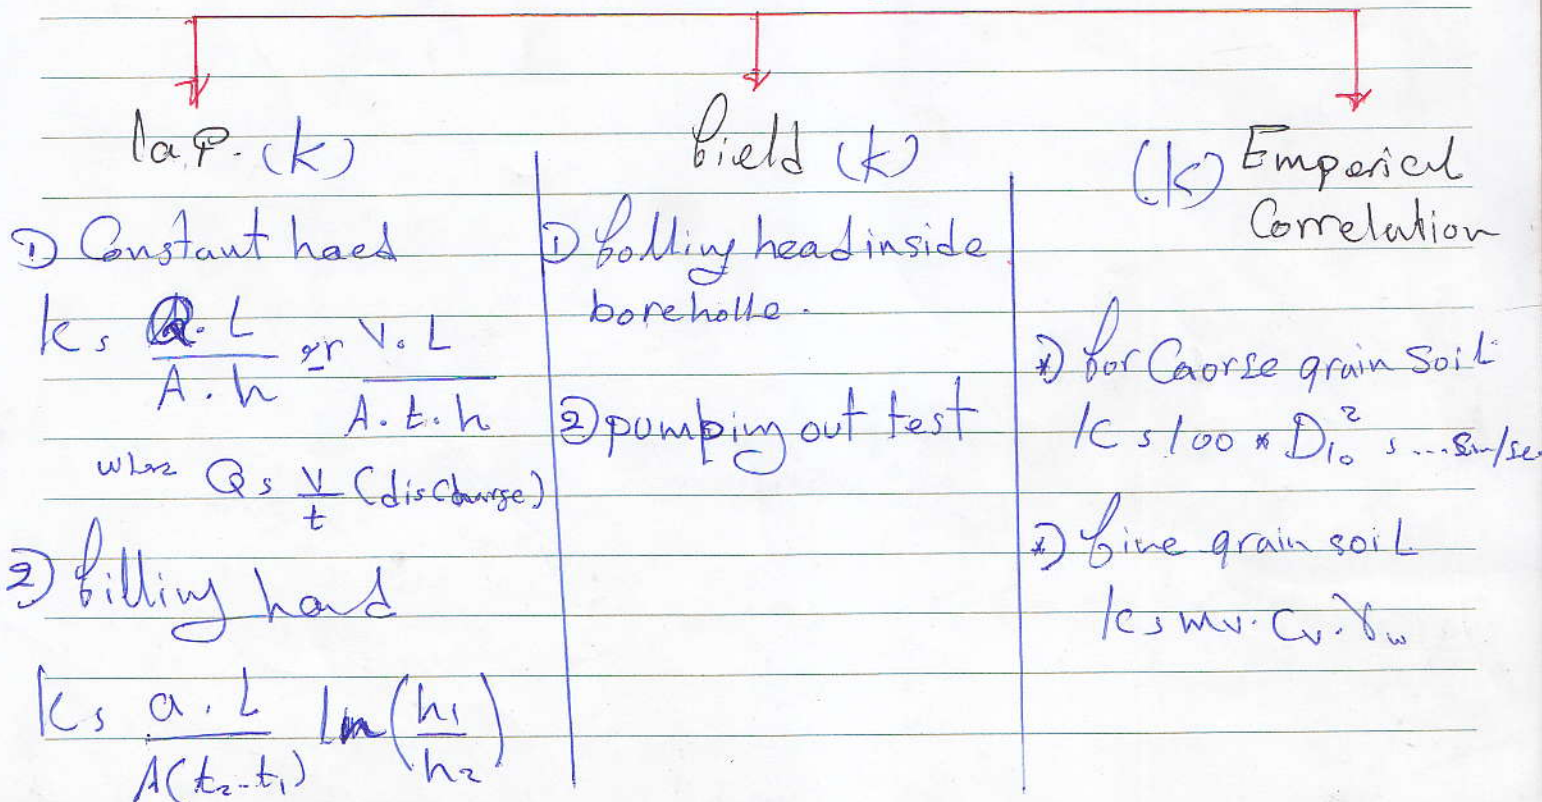 lap. (k)
① Constant haed
k = Q. L / A. h or V. L / A. t. h
where Q = V / t (discharge)
2) filling had
k = a. L / A(t₂-t₁) ln (h₁ / h₂)
field (k)
① folling head inside
boreholle.
② pumping out test
(k) Emperical
Correlation
*) for Caorse grain soil
k = 100 * D₁₀² = ... cm/se
*) fine grain soil
k = mv. Cv. γw